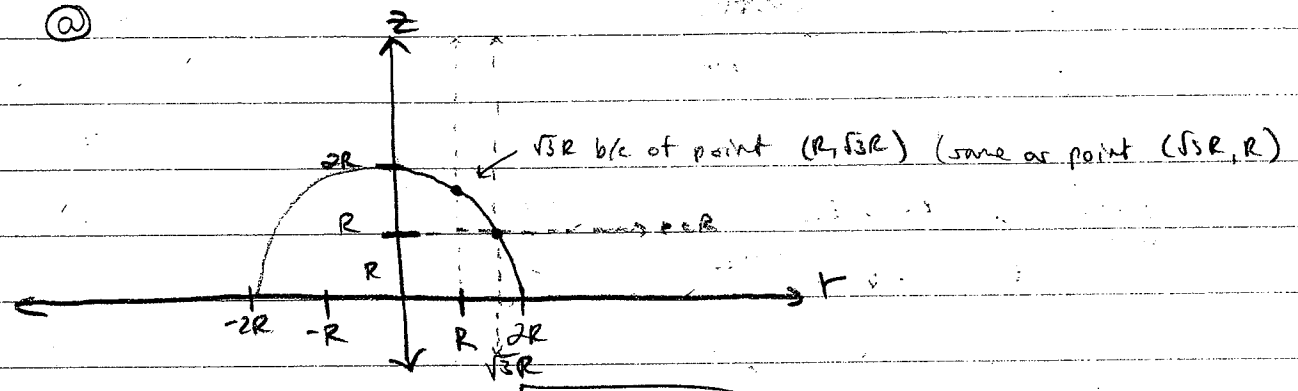 ⓐ
z
√3R b/c of point (R,√3R) (same as point (√3R, R)
2R
R
R
r
-2R -R R 2R
√3R